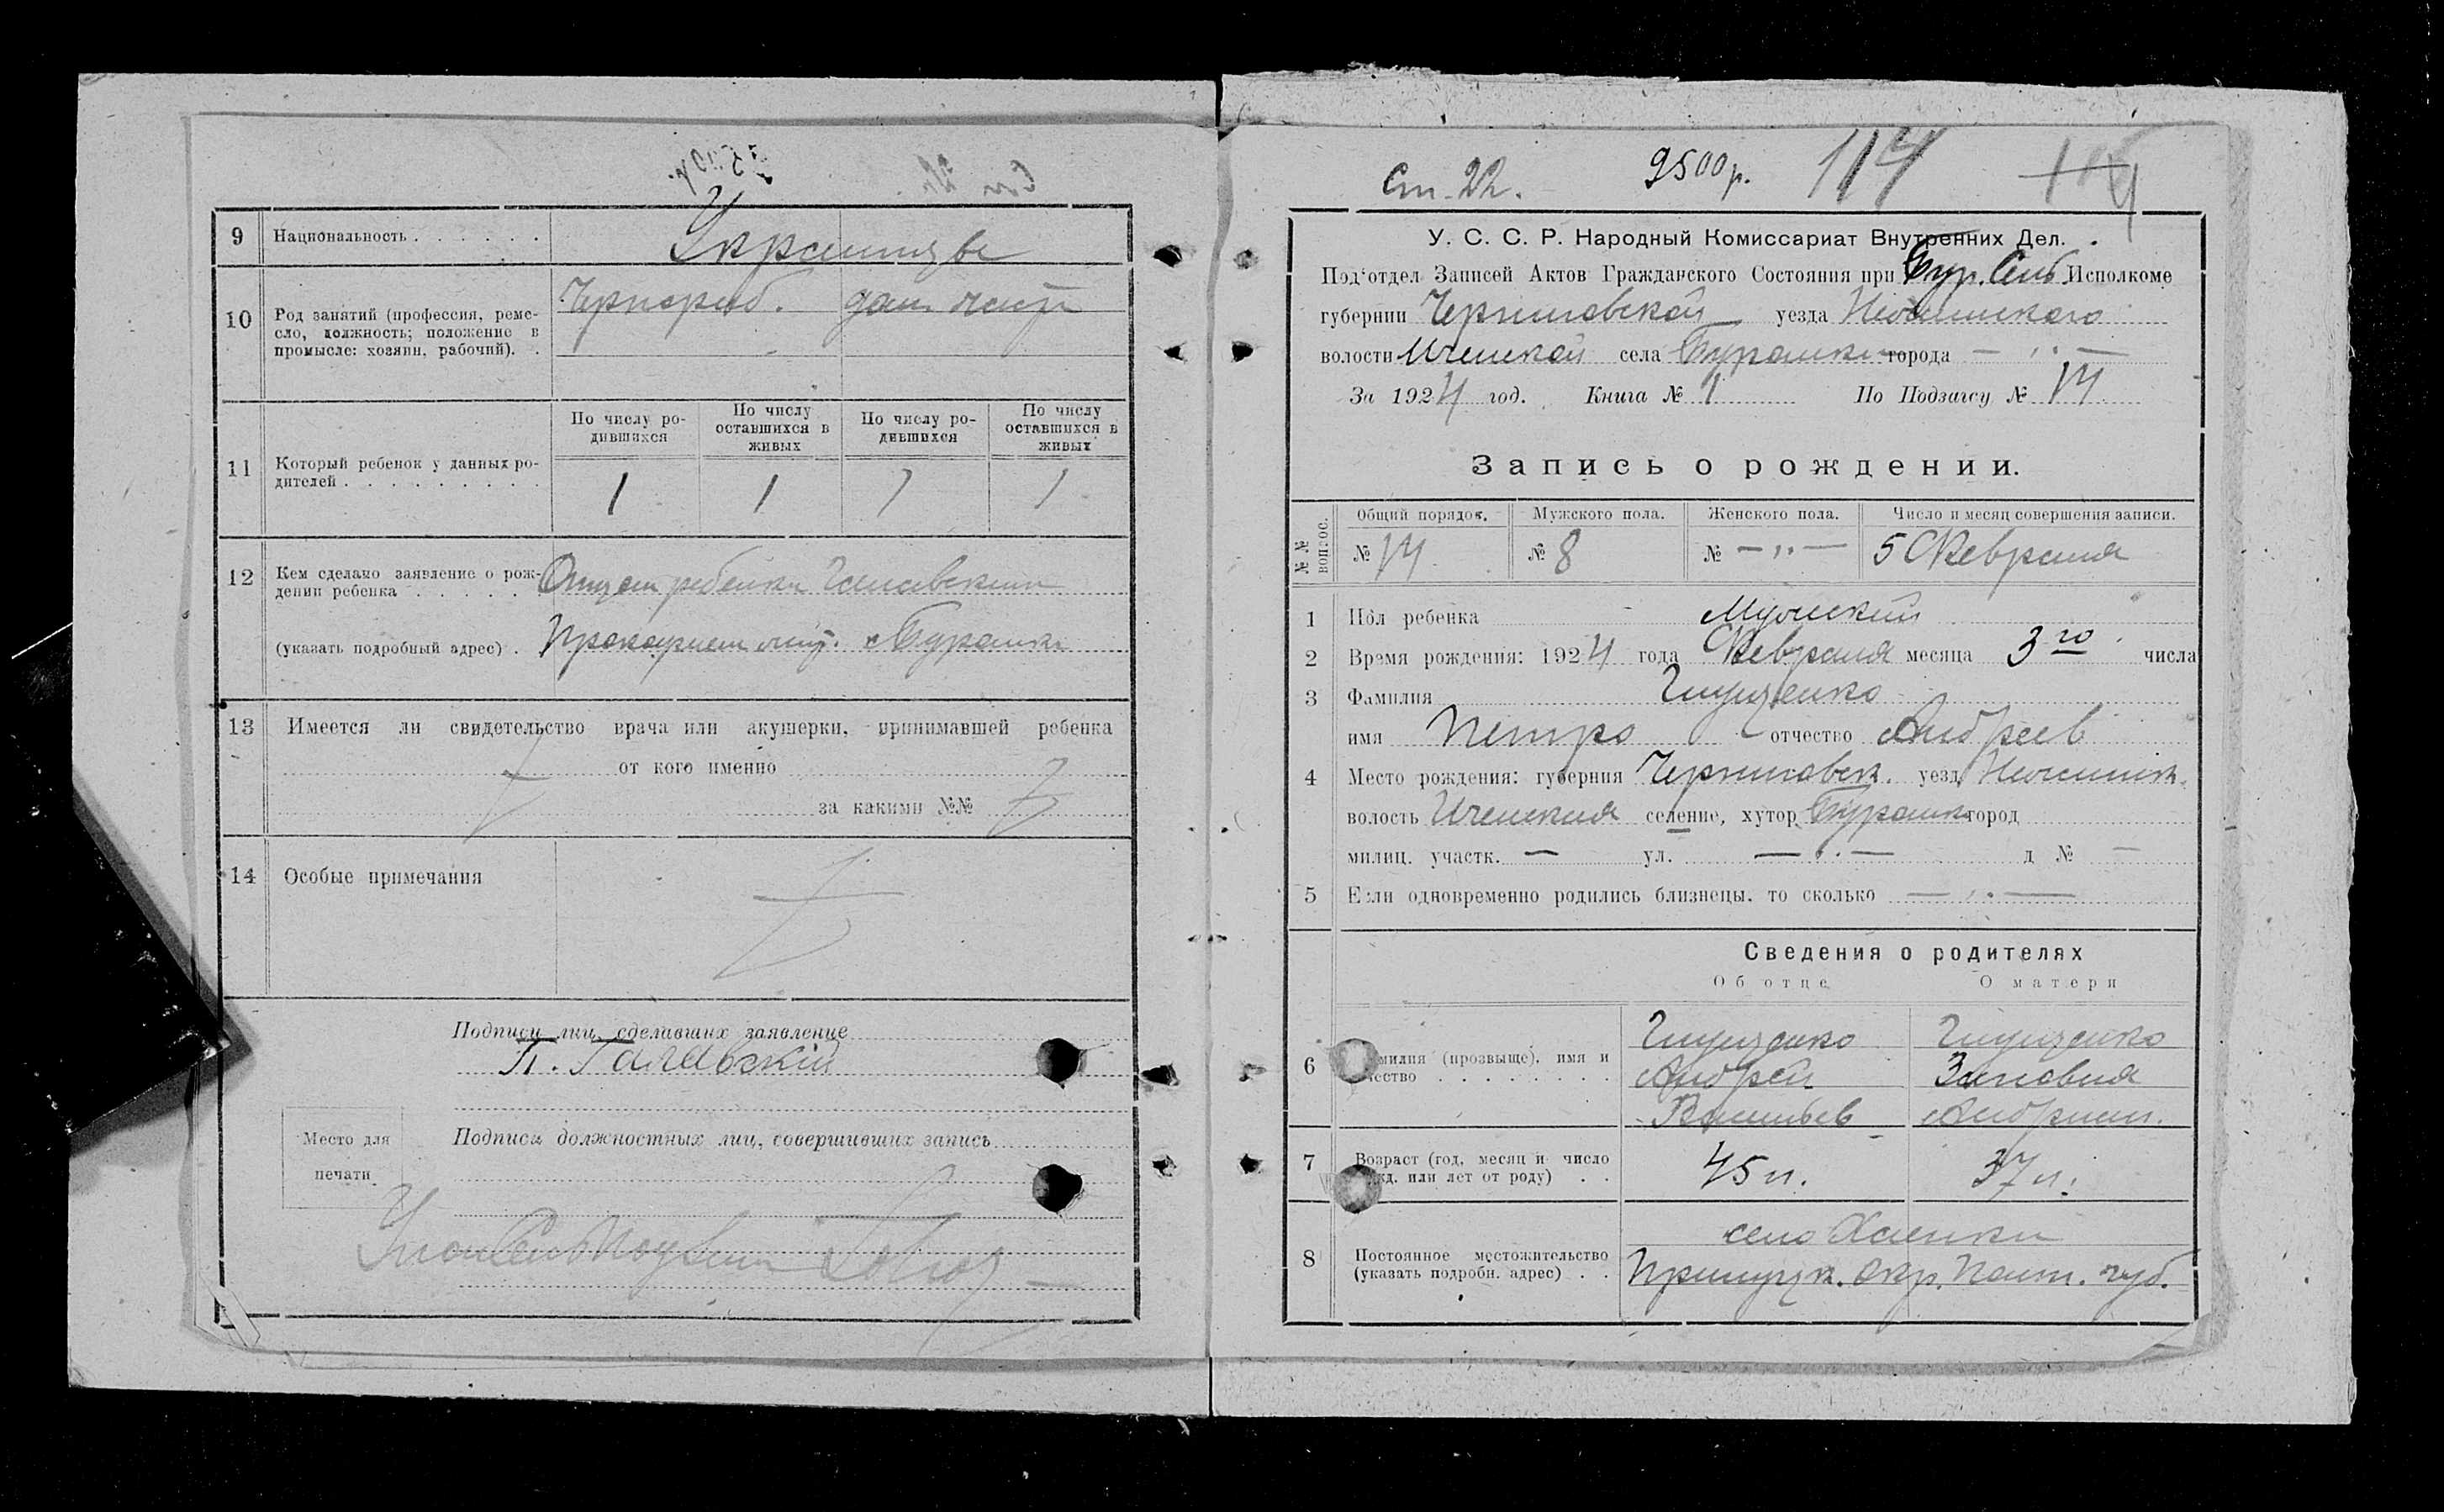 9 Национальность . . . . . . Украинцы
10 Род занятий (профессия, реме-
сло, должность; положение в
промысле: хозяин, рабочий). .
Чернораб. дом. хозя
По числу ро-
дившихся
По числу
оставшихся в
живых
По числу ро-
дившихся
По числу
оставшихся в
живых
11 Который ребенок у данных ро-
дителей . . . . . . . . .
1 1 1 1
12 Кем сделано заявление о рож-
дении ребенка . . . . . Отцем ребенка
(указать подробный адрес) . с Буромки
13 Имеется ли свидетельство врача или акушерки, принимавшей ребенка
от кого именно
за какими №№
14 Особые примечания
Подписи лиц, сделавших заявление
П. Галавский
Место для
печати
Подписи должностных лиц, совершивших запись
Ст. 22. 2500 р. 114
У. С. С. Р. Народный Комиссариат Внутренних Дел.
Под'отдел Записей Актов Гражданского Состояния при Бур. Сель. Исполкоме
губернии Черниговской уезда Нежинского
волости Иченской села Буромки города — „ —
За 1924 год. Книга № 1 По Подзагсу № 14
Запись о рождении.
№ № вопрос.
Общий порядок. Мужского пола. Женского пола. Число и месяц совершения записи.
№ 14 № 8 № — „ — 5 Февраля
1 Пол ребенка Мужский
2 Время рождения: 1924 года Февраля месяца 3го числа
3 Фамилия Грищенко
имя Петро отчество Андреев
4 Место рождения: губерния Черниговск. уезд Нежинск.
волость Иченская селение, хутор Буромк город
милиц. участк. — ул. — „ — д № —
5 Если одновременно родились близнецы, то сколько — „ —
Сведения о родителях
Об отце О матери
6 Фамилия (прозвище), имя и
отчество . . . . . . . .
Грищенко Грищенко
Андрей Зиновия
Васильев Андреев.
7 Возраст (год, месяц и число
рожд. или лет от роду) . .
45 л. 37 л.
8 Постоянное местожительство
(указать подробн. адрес) . .
село Хаенки
Прилуцк. окр. Полт. губ.